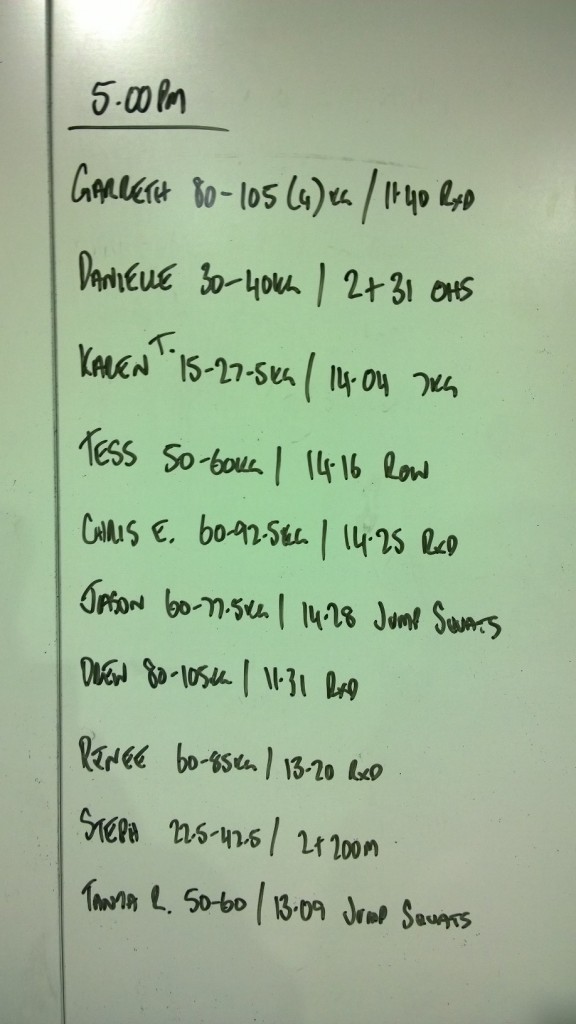 5.00PM
GARRETH 80-105(4)KG / 11.40 RXD
DANIELLE 30-40KG / 2+31 OHS
KAREN T. 15-27.5KG / 14.04 7KG
TESS 50-60KG / 14.16 ROW
CHRIS E. 60-92.5KG / 14.25 RXD
JASON 60-77.5KG / 14.28 JUMP SQUATS
DREW 80-105KG / 11.31 RXD
RENEE 60-85KG / 13.20 RXD
STEPH 22.5-42.5 / 2+200M
TANIA R. 50-60 / 13.09 JUMP SQUATS